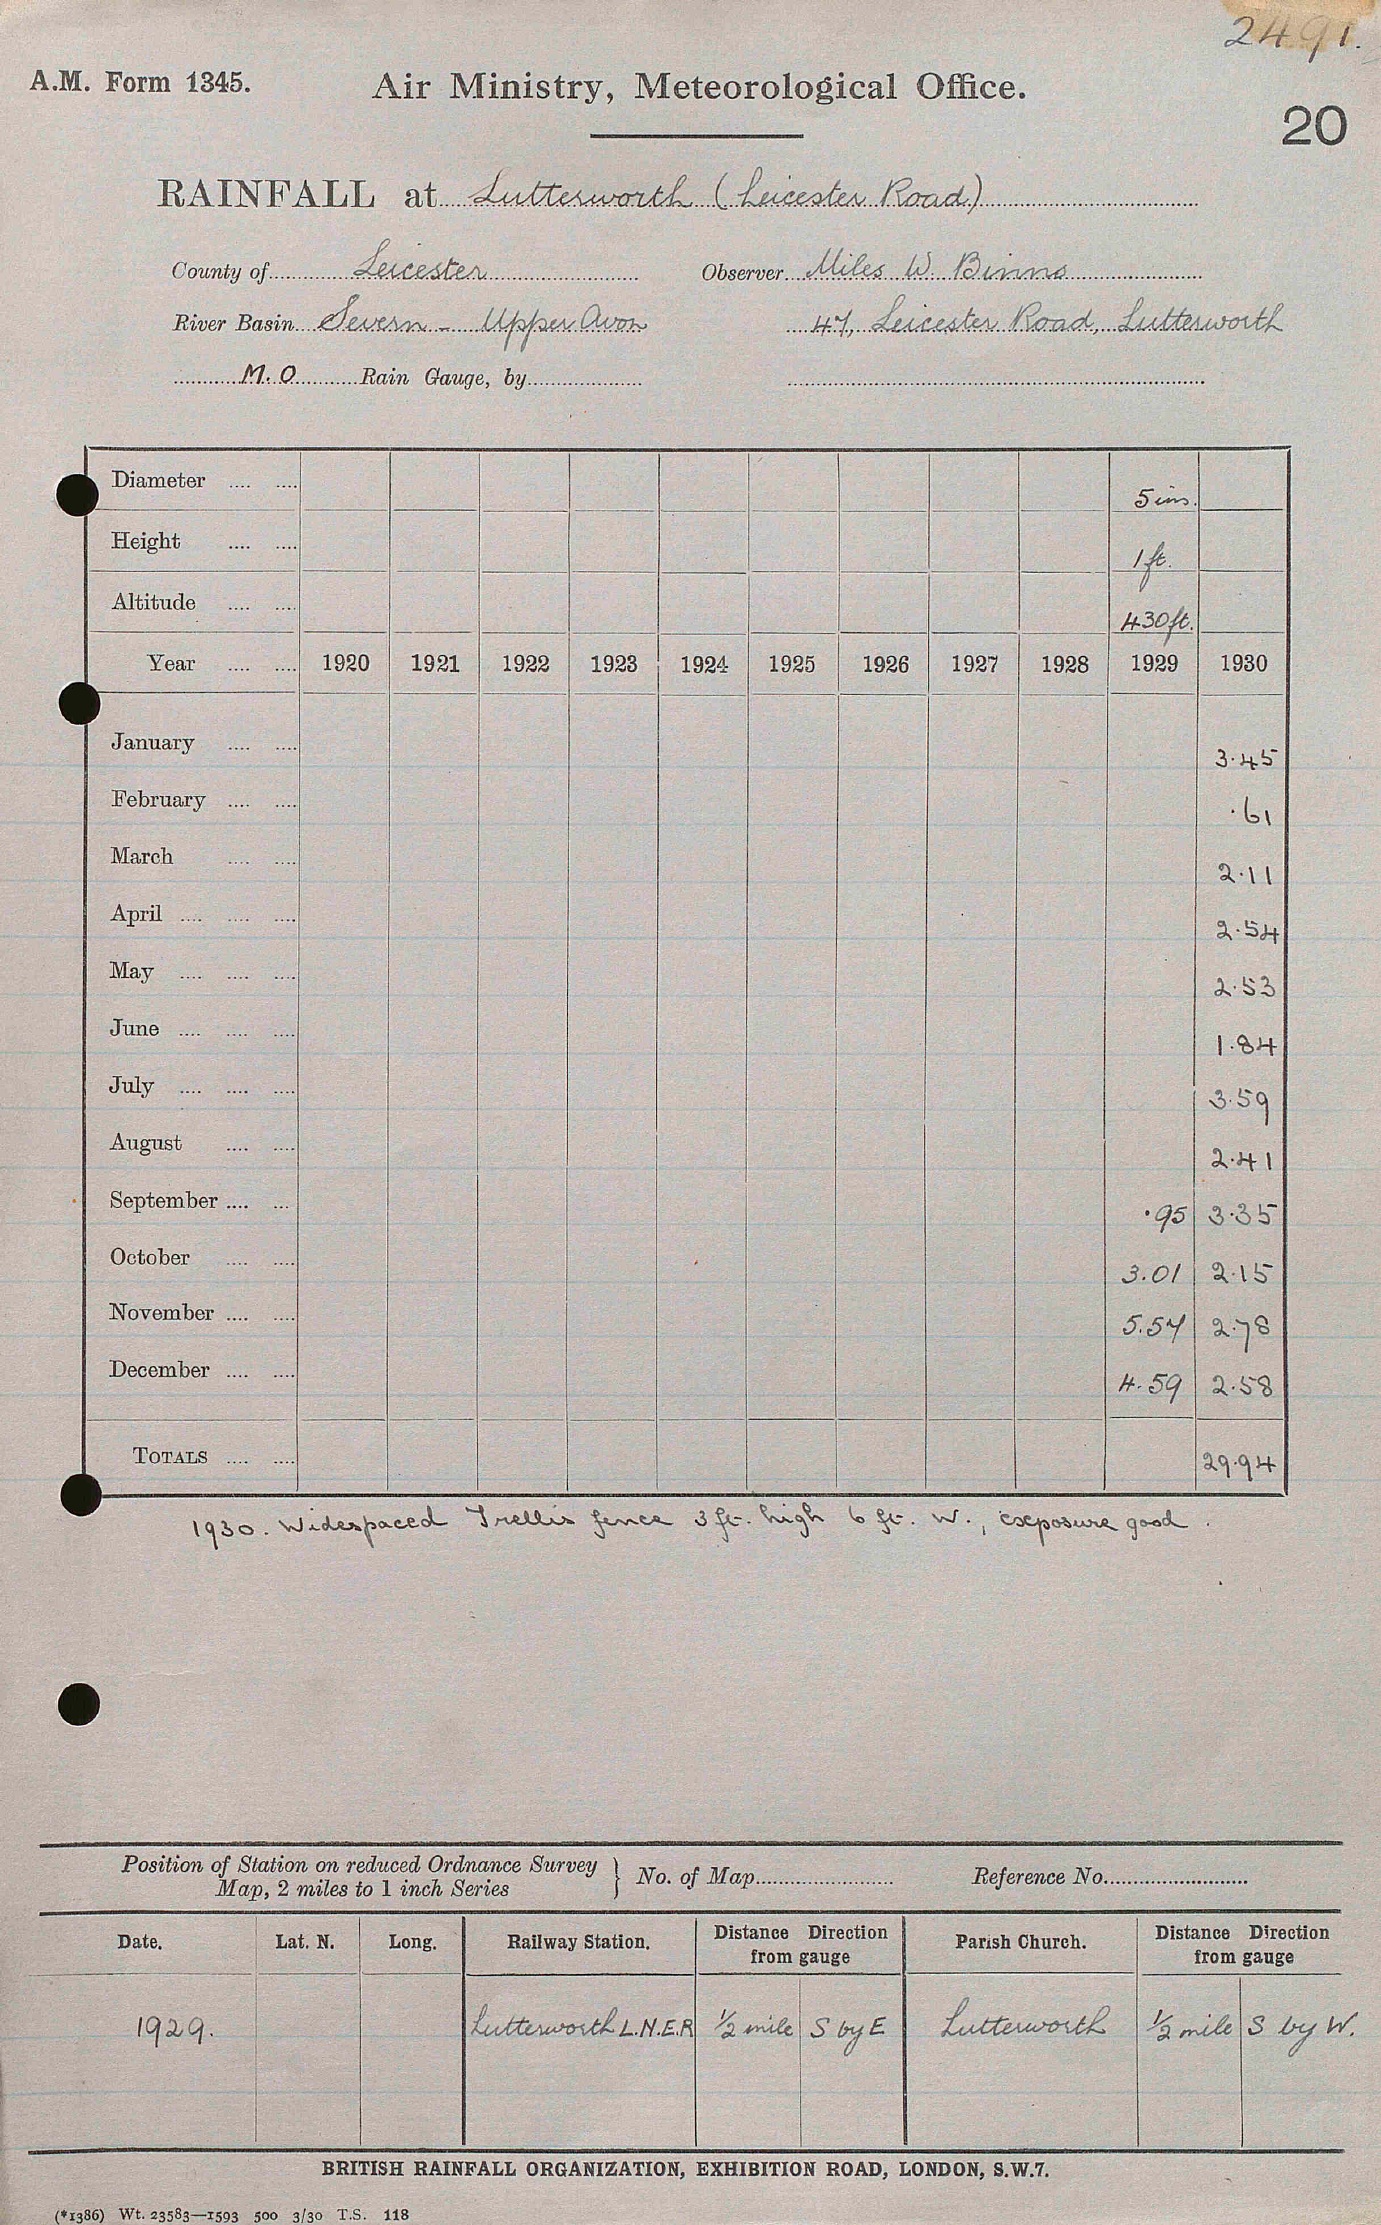 2491.
A.M. Form 1345. Air Ministry, Meteorological Office.
20
RAINFALL at Lutterworth (Leicester Road)
County of Leicester Observer Miles W. Binns
River Basin Severn - Upper Avon 47, Leicester Road, Lutterworth
M.O Rain Gauge, by
Diameter .... .... 5 ins.
Height .... .... 1 ft.
Altitude .... .... 430 ft.
Year .... .... 1920 1921 1922 1923 1924 1925 1926 1927 1928 1929 1930
January .... .... 3.45
February .... .... .61
March .... .... 2.11
April .... .... .... 2.54
May .... .... .... 2.53
June .... .... .... 1.84
July .... .... .... 3.59
August .... .... 2.41
September .... .... .95 3.35
October .... .... 3.01 2.15
November .... .... 5.57 2.78
December .... .... 4.59 2.58
TOTALS .... .... 29.94
1930. Widespaced Trellis fence 3 ft. high 6 ft. W., exposure good.
Position of Station on reduced Ordnance Survey
Map, 2 miles to 1 inch Series } No. of Map Reference No.
Date. Lat. N. Long. Railway Station. Distance Direction from gauge Parish Church. Distance Direction from gauge
1929. Lutterworth L.N.E.R ½ mile S by E Lutterworth ½ mile S by W.
BRITISH RAINFALL ORGANIZATION, EXHIBITION ROAD, LONDON, S.W.7.
(*1386) Wt. 23583—1593 500 3/30 T.S. 118